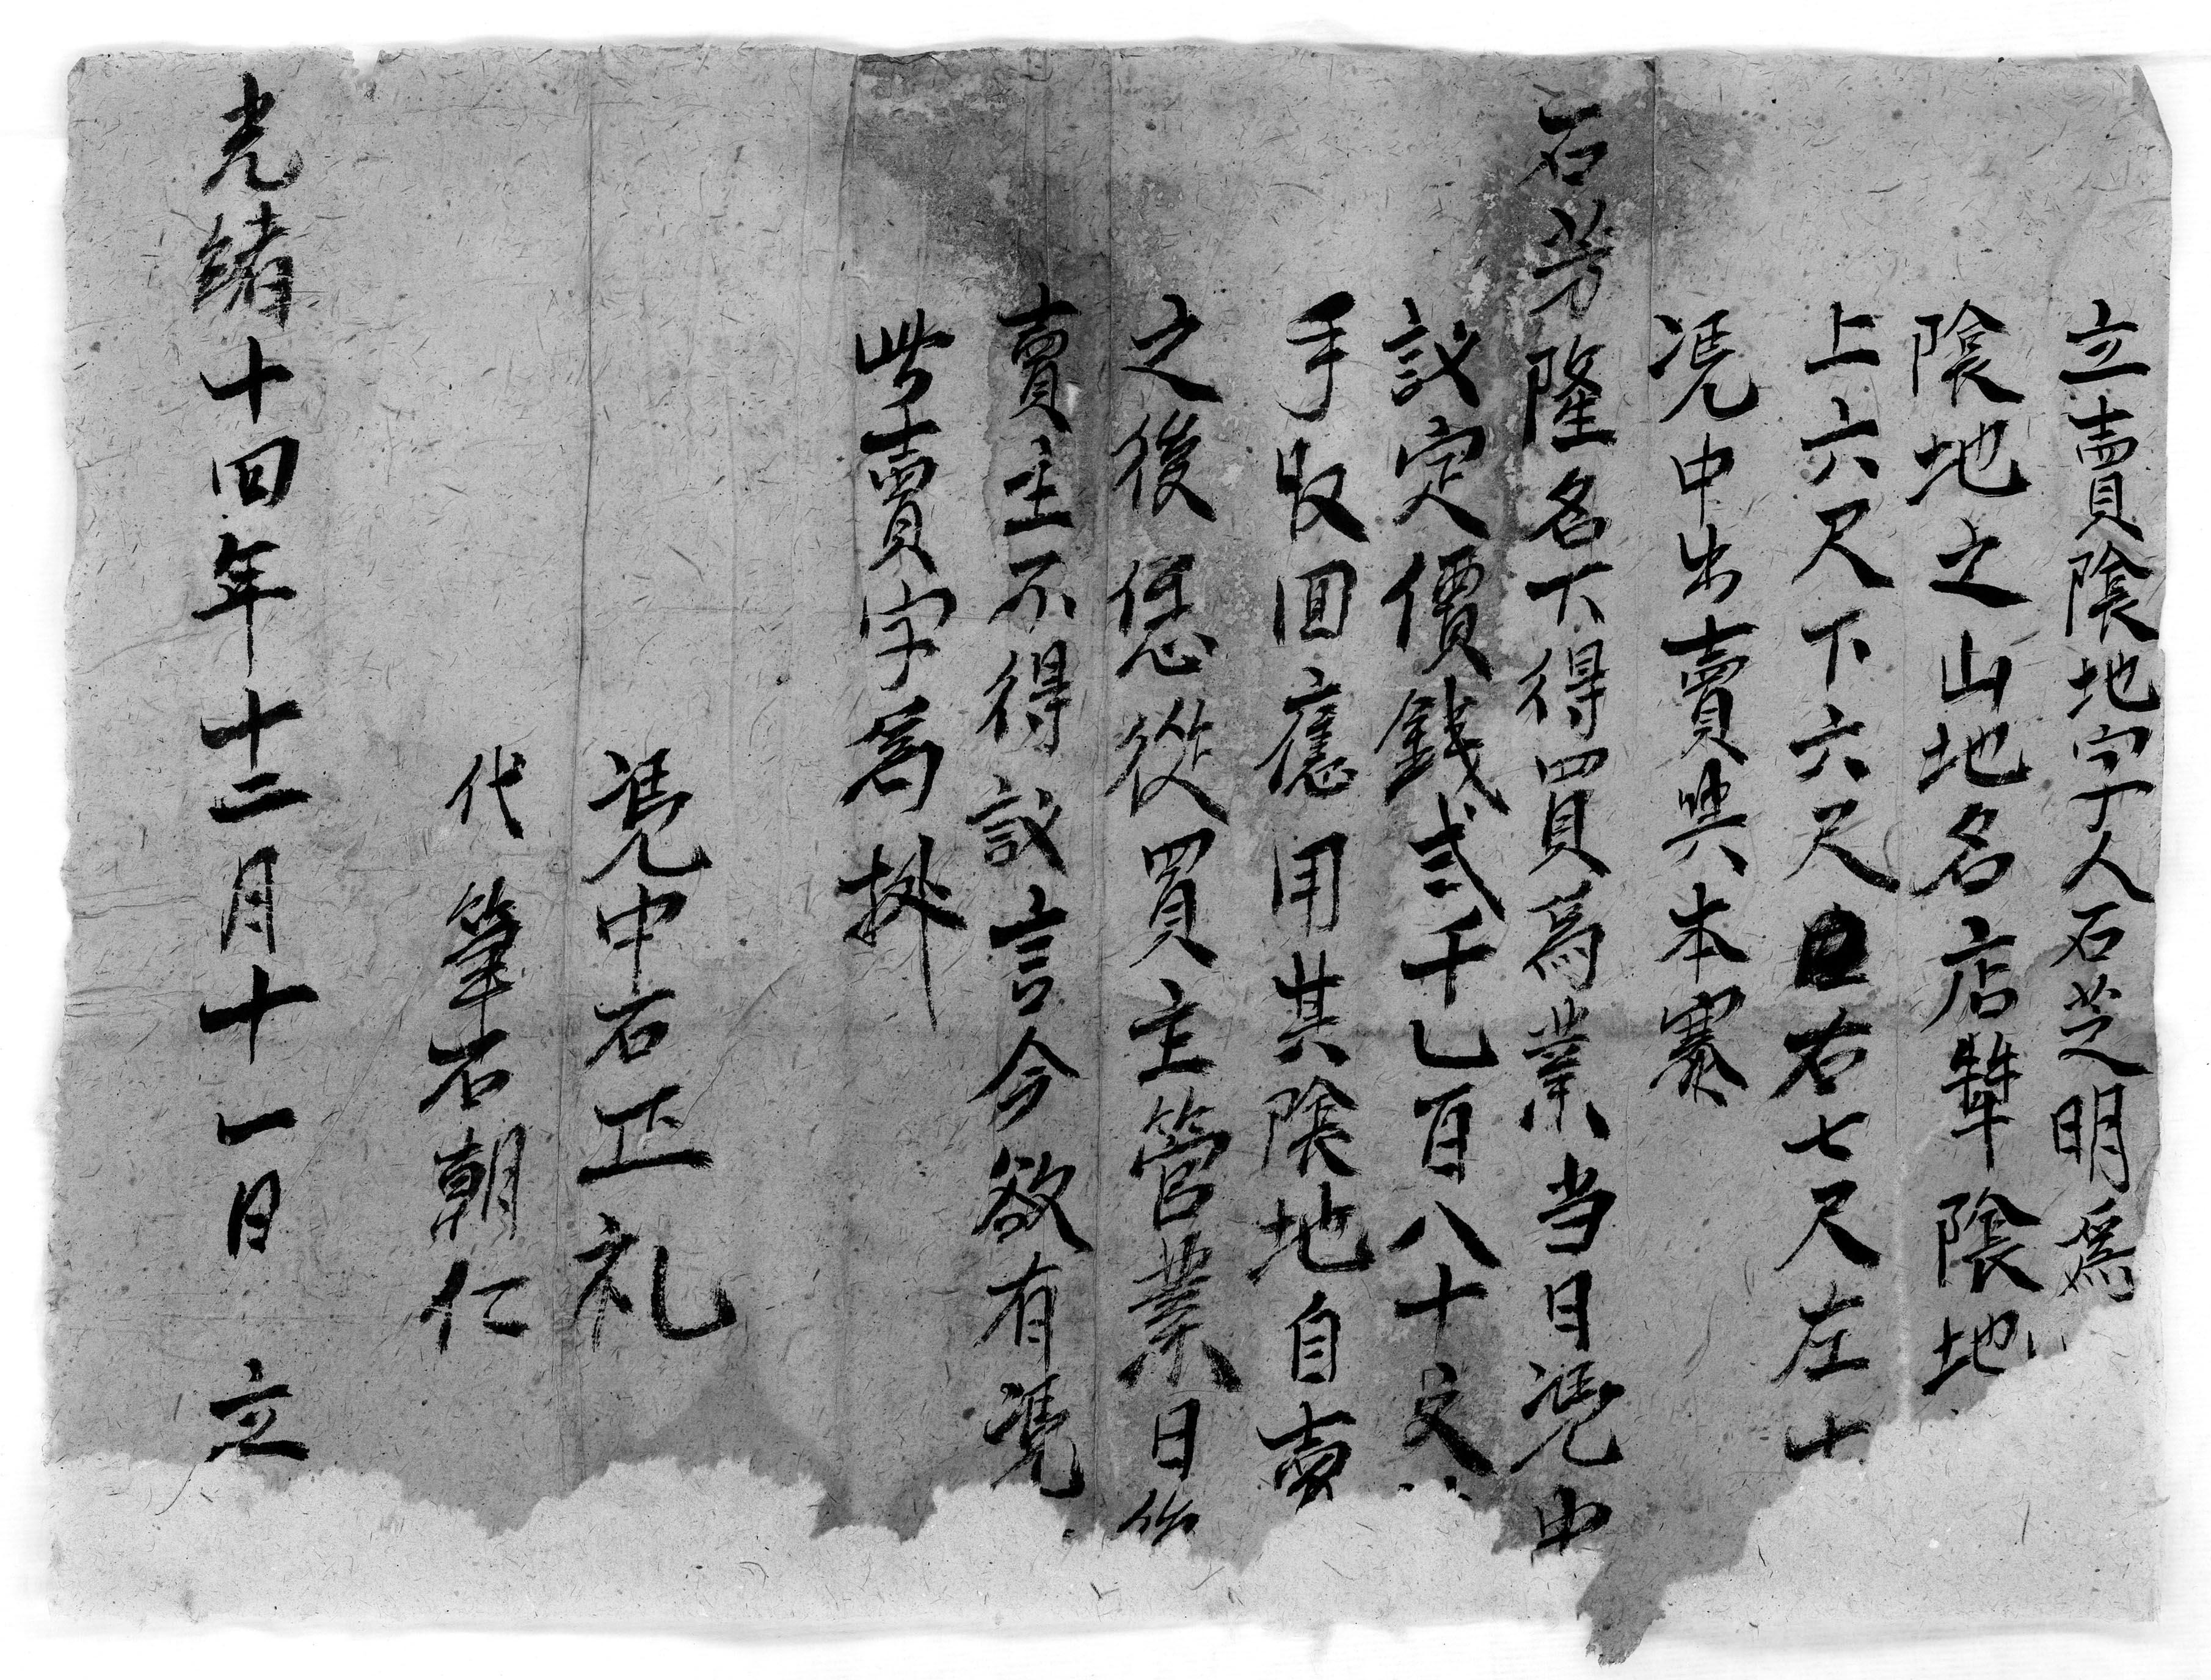 立賣陰地字人石芝明爲
陰地之山地名店犂陰地
上六尺下六尺右七尺左十
凴中出賣與本寨
石芳隆名下得買爲業当日凴中
議定價錢弍千乚百八十文
手收回應用其陰地自賣
之後恁從買主管業日後
賣主不得議言今欲有凴
此賣字爲拠
凴中石正礼
代筆石朝仁
光緒十四年十二月十一日立